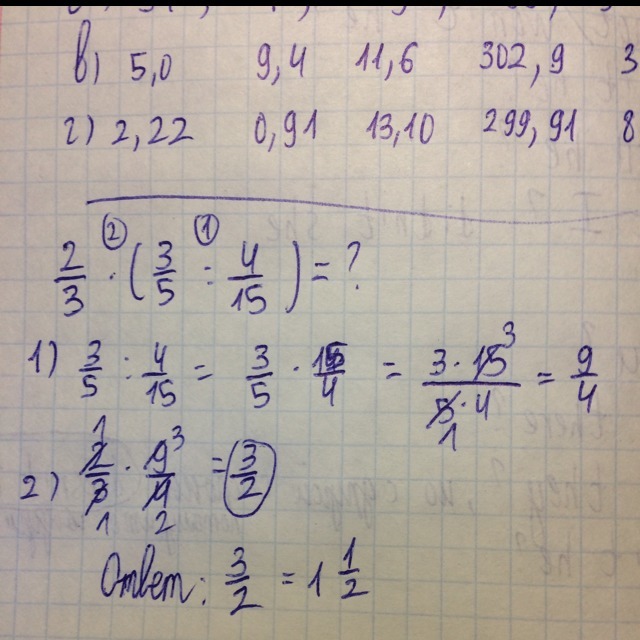 в) 5,0 9,4 11,6 302,9 3
г) 2,22 0,91 13,10 299,91 8
② ①
2/3 · (3/5 : 4/15) = ?
1) 3/5 : 4/15 = 3/5 · 15/4 = 3 · 15 3 / 5 · 4 1 = 9/4
2) 1 2/3 1 · 9 3/4 2 = 3/2
Ответ: 3/2 = 1 1/2